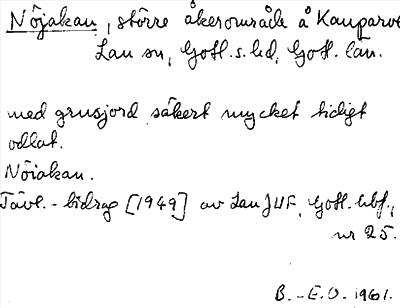 Nöjakan, större åkerområde å Kauparve
Lau sn, Gotl. s. hd, Gotl. län.
med grusjord säkert mycket tidigt
odlat.
Nöiakan.
Tävl.-bidrag [1949] av Lau JUF, Gotl. hbf.,
nr 25.
B.-E.O. 1961.